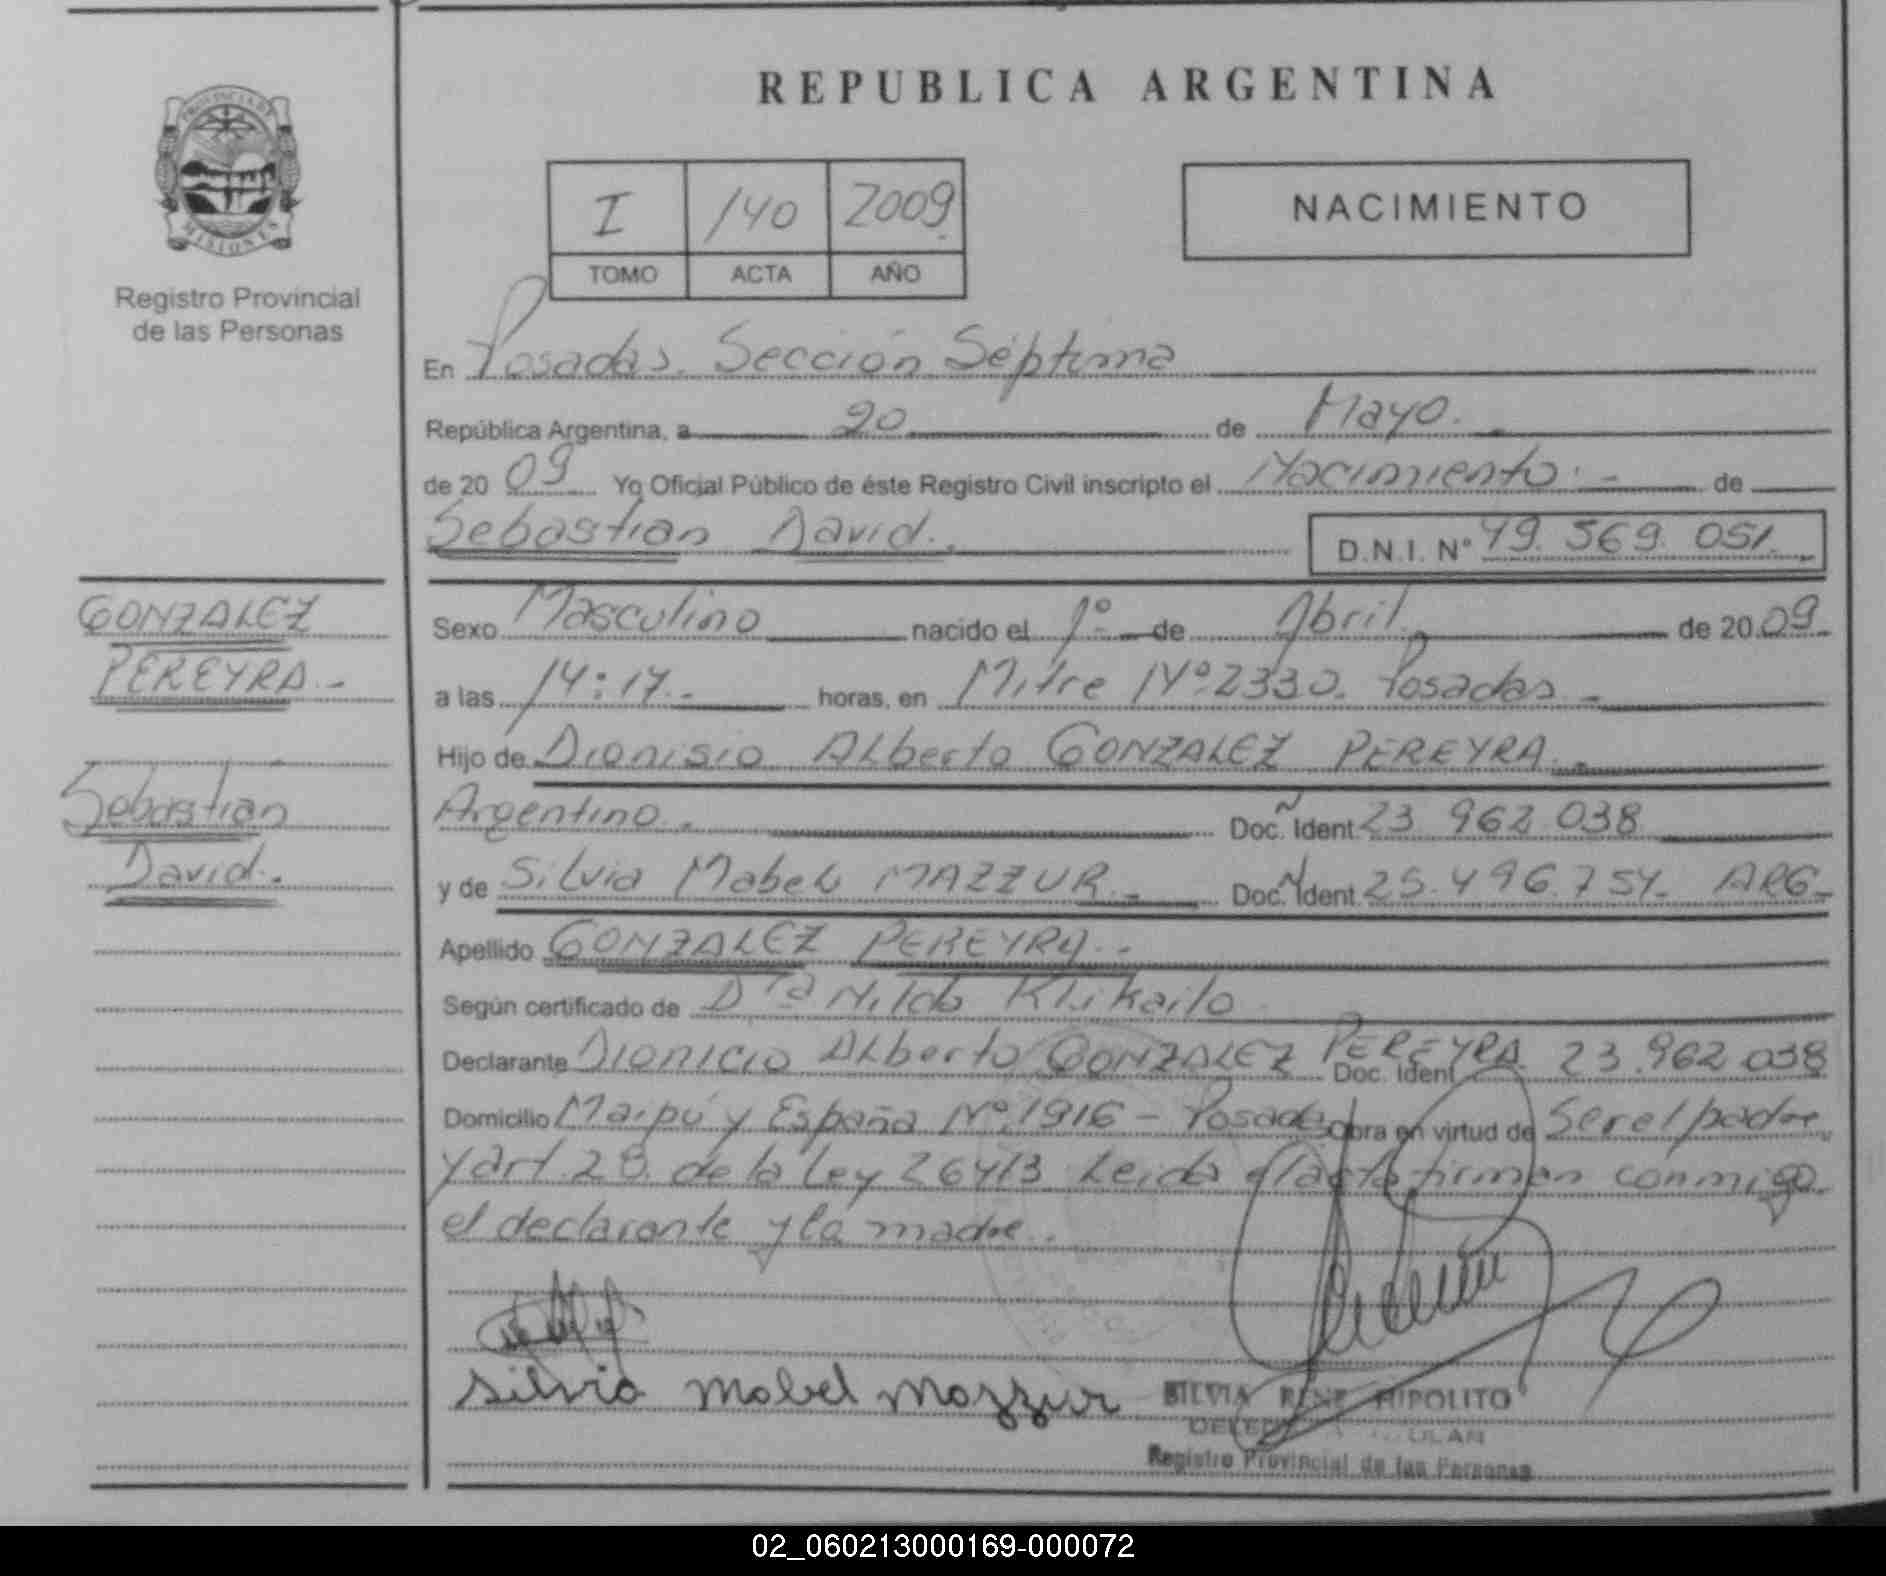 REPUBLICA ARGENTINA
PROVINCIA DE
MISIONES
Registro Provincial
de las Personas
I 140 2009
TOMO ACTA AÑO
NACIMIENTO
En Posadas. Sección Séptima
República Argentina, a 20 de Mayo.
de 20 09 Yo Oficial Público de éste Registro Civil inscripto el Nacimiento.- de
Sebastian David. D.N.I. Nº 49.569.051.
GONZALEZ
PEREYRA.-
Sebastian
David.
Sexo Masculino nacido el 1º de Abril. de 20 09.
a las 14:17.- horas, en Mitre Nº 2330. Posadas.-
Hijo de Dionisio Alberto GONZALEZ PEREYRA.-
Argentino. Doc. Ident 23 962 038
y de Silvia Mabel MAZZUR.- Doc. Ident 25.496.754. ARG.
Apellido GONZALEZ PEREYRA.-
Según certificado de Dra Nilda
Declarante Dionicio Alberto GONZALEZ PEREYRA Doc. Ident 23.962.038
Domicilio Maipú y España Nº 1916 - Posadas Obra en virtud de Ser el padre
y art. 28. de la Ley 26413. Leida el acta firman conmigo
el declarante y la madre.
Silvia Mabel Mazzur
SILVIA RENE HIPOLITO
Registro Provincial de las Personas
02_060213000169-000072